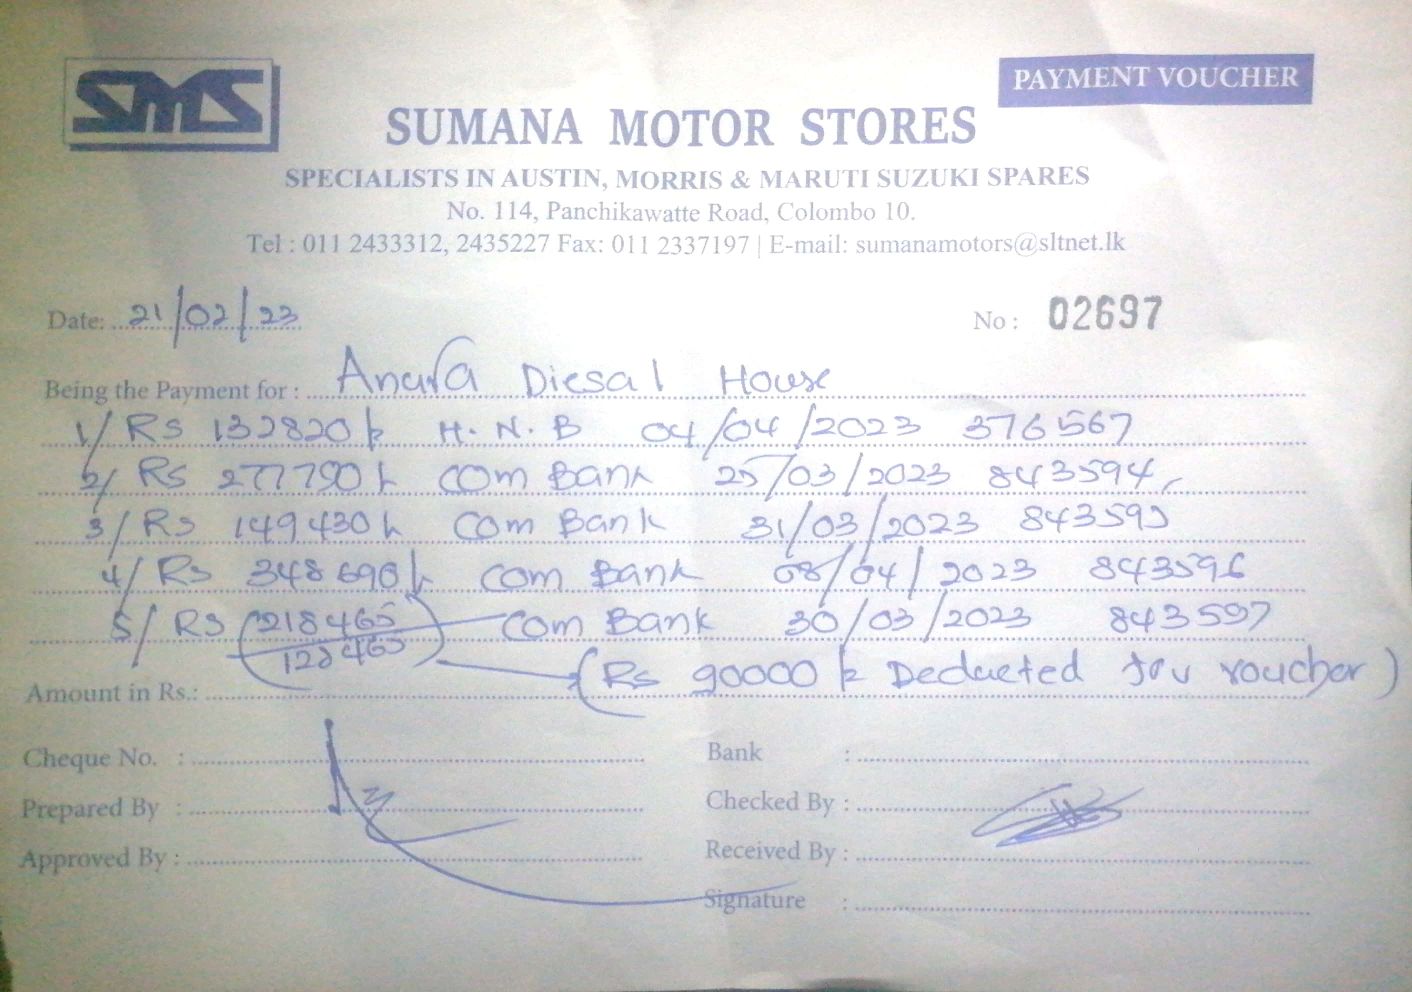 SMS
PAYMENT VOUCHER
SUMANA MOTOR STORES
SPECIALISTS IN AUSTIN, MORRIS & MARUTI SUZUKI SPARES
No. 114, Panchikawatte Road, Colombo 10.
Tel : 011 2433312, 2435227 Fax: 011 2337197 | E-mail: sumanamotors@sltnet.lk
Date: 21/02/23 No : 02697
Being the Payment for : Anura Diesal House
1/ Rs 132820/- H.N.B 04/04/2023 376567
2/ Rs 277790/- Com Bank 25/03/2023 843594
3/ Rs 149430/- Com Bank 31/03/2023 843595
4/ Rs 348690/- Com Bank 08/04/2023 843596
5/ Rs 218465 Com Bank 30/03/2023 843597
128465
Amount in Rs.: (Rs 90000/- Deducted for voucher)
Cheque No. : Bank :
Prepared By : Checked By :
Approved By : Received By :
Signature :